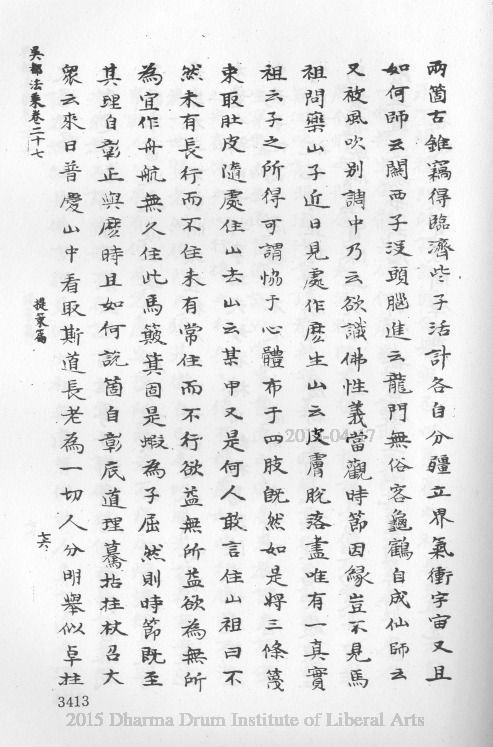 兩箇古錐竊得臨濟些子活計各自分疆立界氣衝宇宙又且
如何師云關西子沒頭腦進云龍門無俗客龜鶴自成仙師云
又被風吹別調中乃云欲識佛性義當觀時節因緣豈不見馬
祖問藥山子近日見處作麽生山云皮膚脫落盡唯有一真實
祖云子之所得可謂恊于心體布于四肢旣然如是將三條篾
束取肚皮隨處住山去山云某甲又是何人敢言住山祖曰不
然未有長行而不住未有常住而不行欲益無所益欲為無所
為宜作舟航無久住此馬簸箕固是蝦為子屈然則時節既至
其理自彰正與麽時且如何說箇自彰底道理驀拈柱杖召大
衆云來日普慶山中看取斯道長老為一切人分明舉似卓柱
吳都法乗卷二十七
提乗篇
3413
2015 Dharma Drum Institute of Liberal Arts